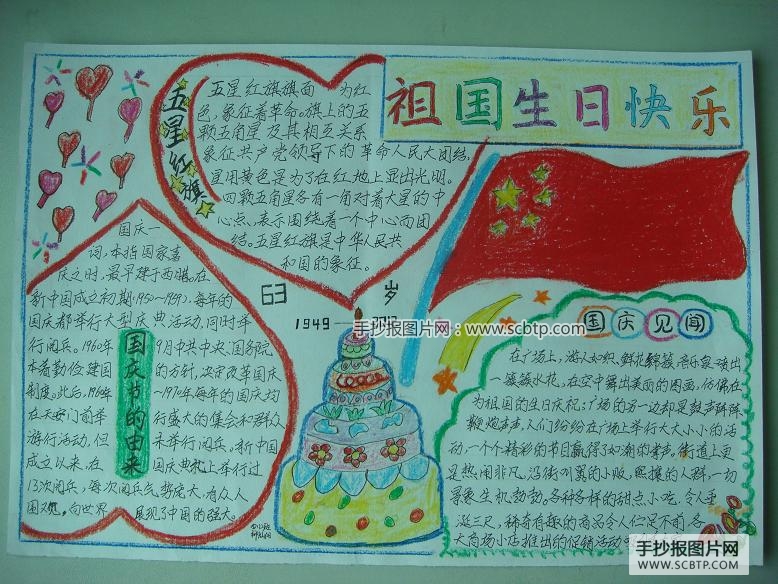 祖国生日快乐
五星红旗
五星红旗旗面 为红
色，象征着革命。旗上的五
颗五角星及其相互关系
象征共产党领导下的革命人民大团结，
星用黄色是为了在红地上显出光明。
四颗五角星各有一角对着大星的中
心点，表示围绕着一个中心而团
结。五星红旗是中华人民共
和国的象征。
国庆节的由来
国庆一
词，本指国家喜
庆之时，最早建于西腊。在
新中国成立初期(1950—1959)，每年的
国庆都举行大型庆典活动，同时举
行阅兵。1960年 9月中共中央、国务院
本着勤俭建国 的方针，决定改革国庆
制度。此后，1960年 —1970年每年的国庆均
在天安门前举 行盛大的集会和群众
游行活动，但 未举行阅兵。新中国
成立以来，在 国庆典礼上举行过
13次阅兵，每次阅兵气势庞大，有众人
围观。向世界 展现了中国的强大。
63 岁
1949
手抄报图片网：www.scbtp.com
国庆见闻
在广场上，游人如织，鲜花簇簇，音乐泉喷出
一簇簇水花，在空中舞出美丽的图画，仿佛在
为祖国的生日庆祝；广场的另一边却是鼓声阵阵
鞭炮声声，人们纷纷在广场上举行大大小小的活
动，一个个精彩的节目赢得了如潮的掌声。街道上更
是热闹非凡，沿街叫卖的小贩，熙攘的人群，一切
景象生机勃勃，各种各样的甜点小吃，令人垂
涎三尺，稀奇有趣的商品令人伫足不前，各
大商场小店推出的促销活动
手抄报图片网
WWW.SCBTP.COM